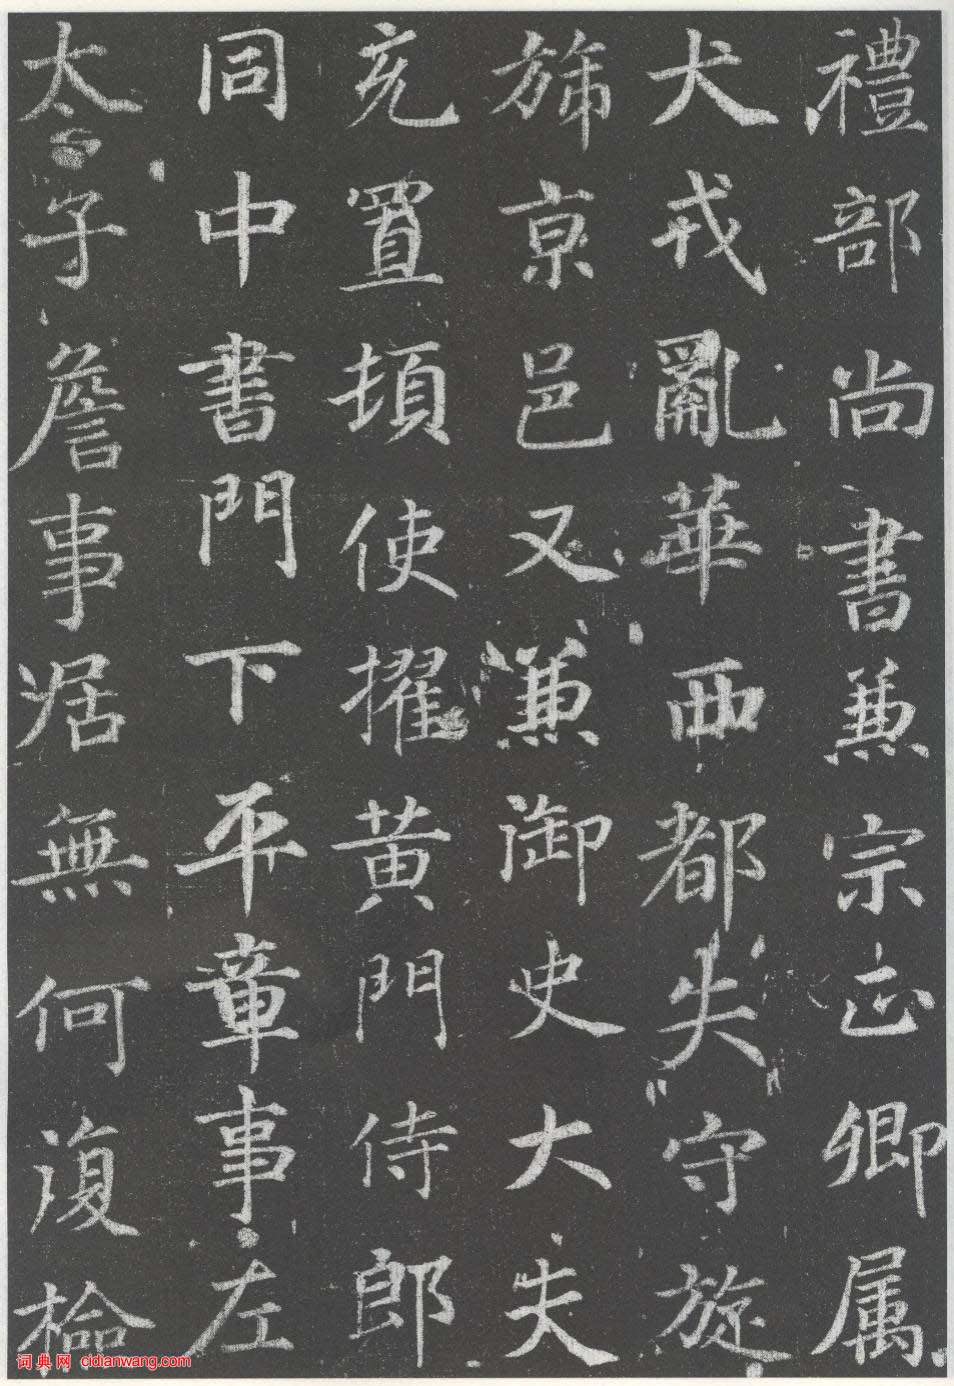 禮部尚書兼宗正卿属
犬戎亂華西都失守旋
旆京邑又兼御史大夫
充置頓使擢黄門侍郎
同中書門下平章事左
太子詹事居無何復檢
词典网 cidianwang.com